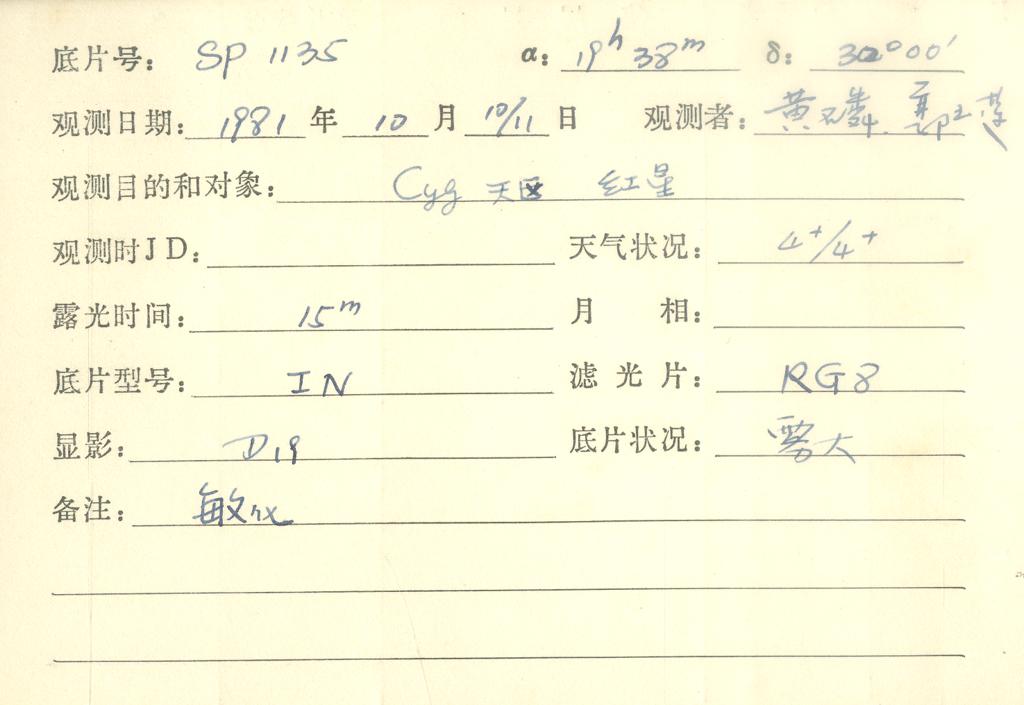 底片号: SP 1135 α: 19h 38m δ: 30°00'
观测日期: 1981 年 10 月 10/11 日 观测者: 黄磷.
观测目的和对象: Cyg 天区 红星
观测时JD: 天气状况: 4+/4+
露光时间: 15m 月 相:
底片型号: IN 滤光片: RG8
显影: D19 底片状况: 雾大
备注: 敏化